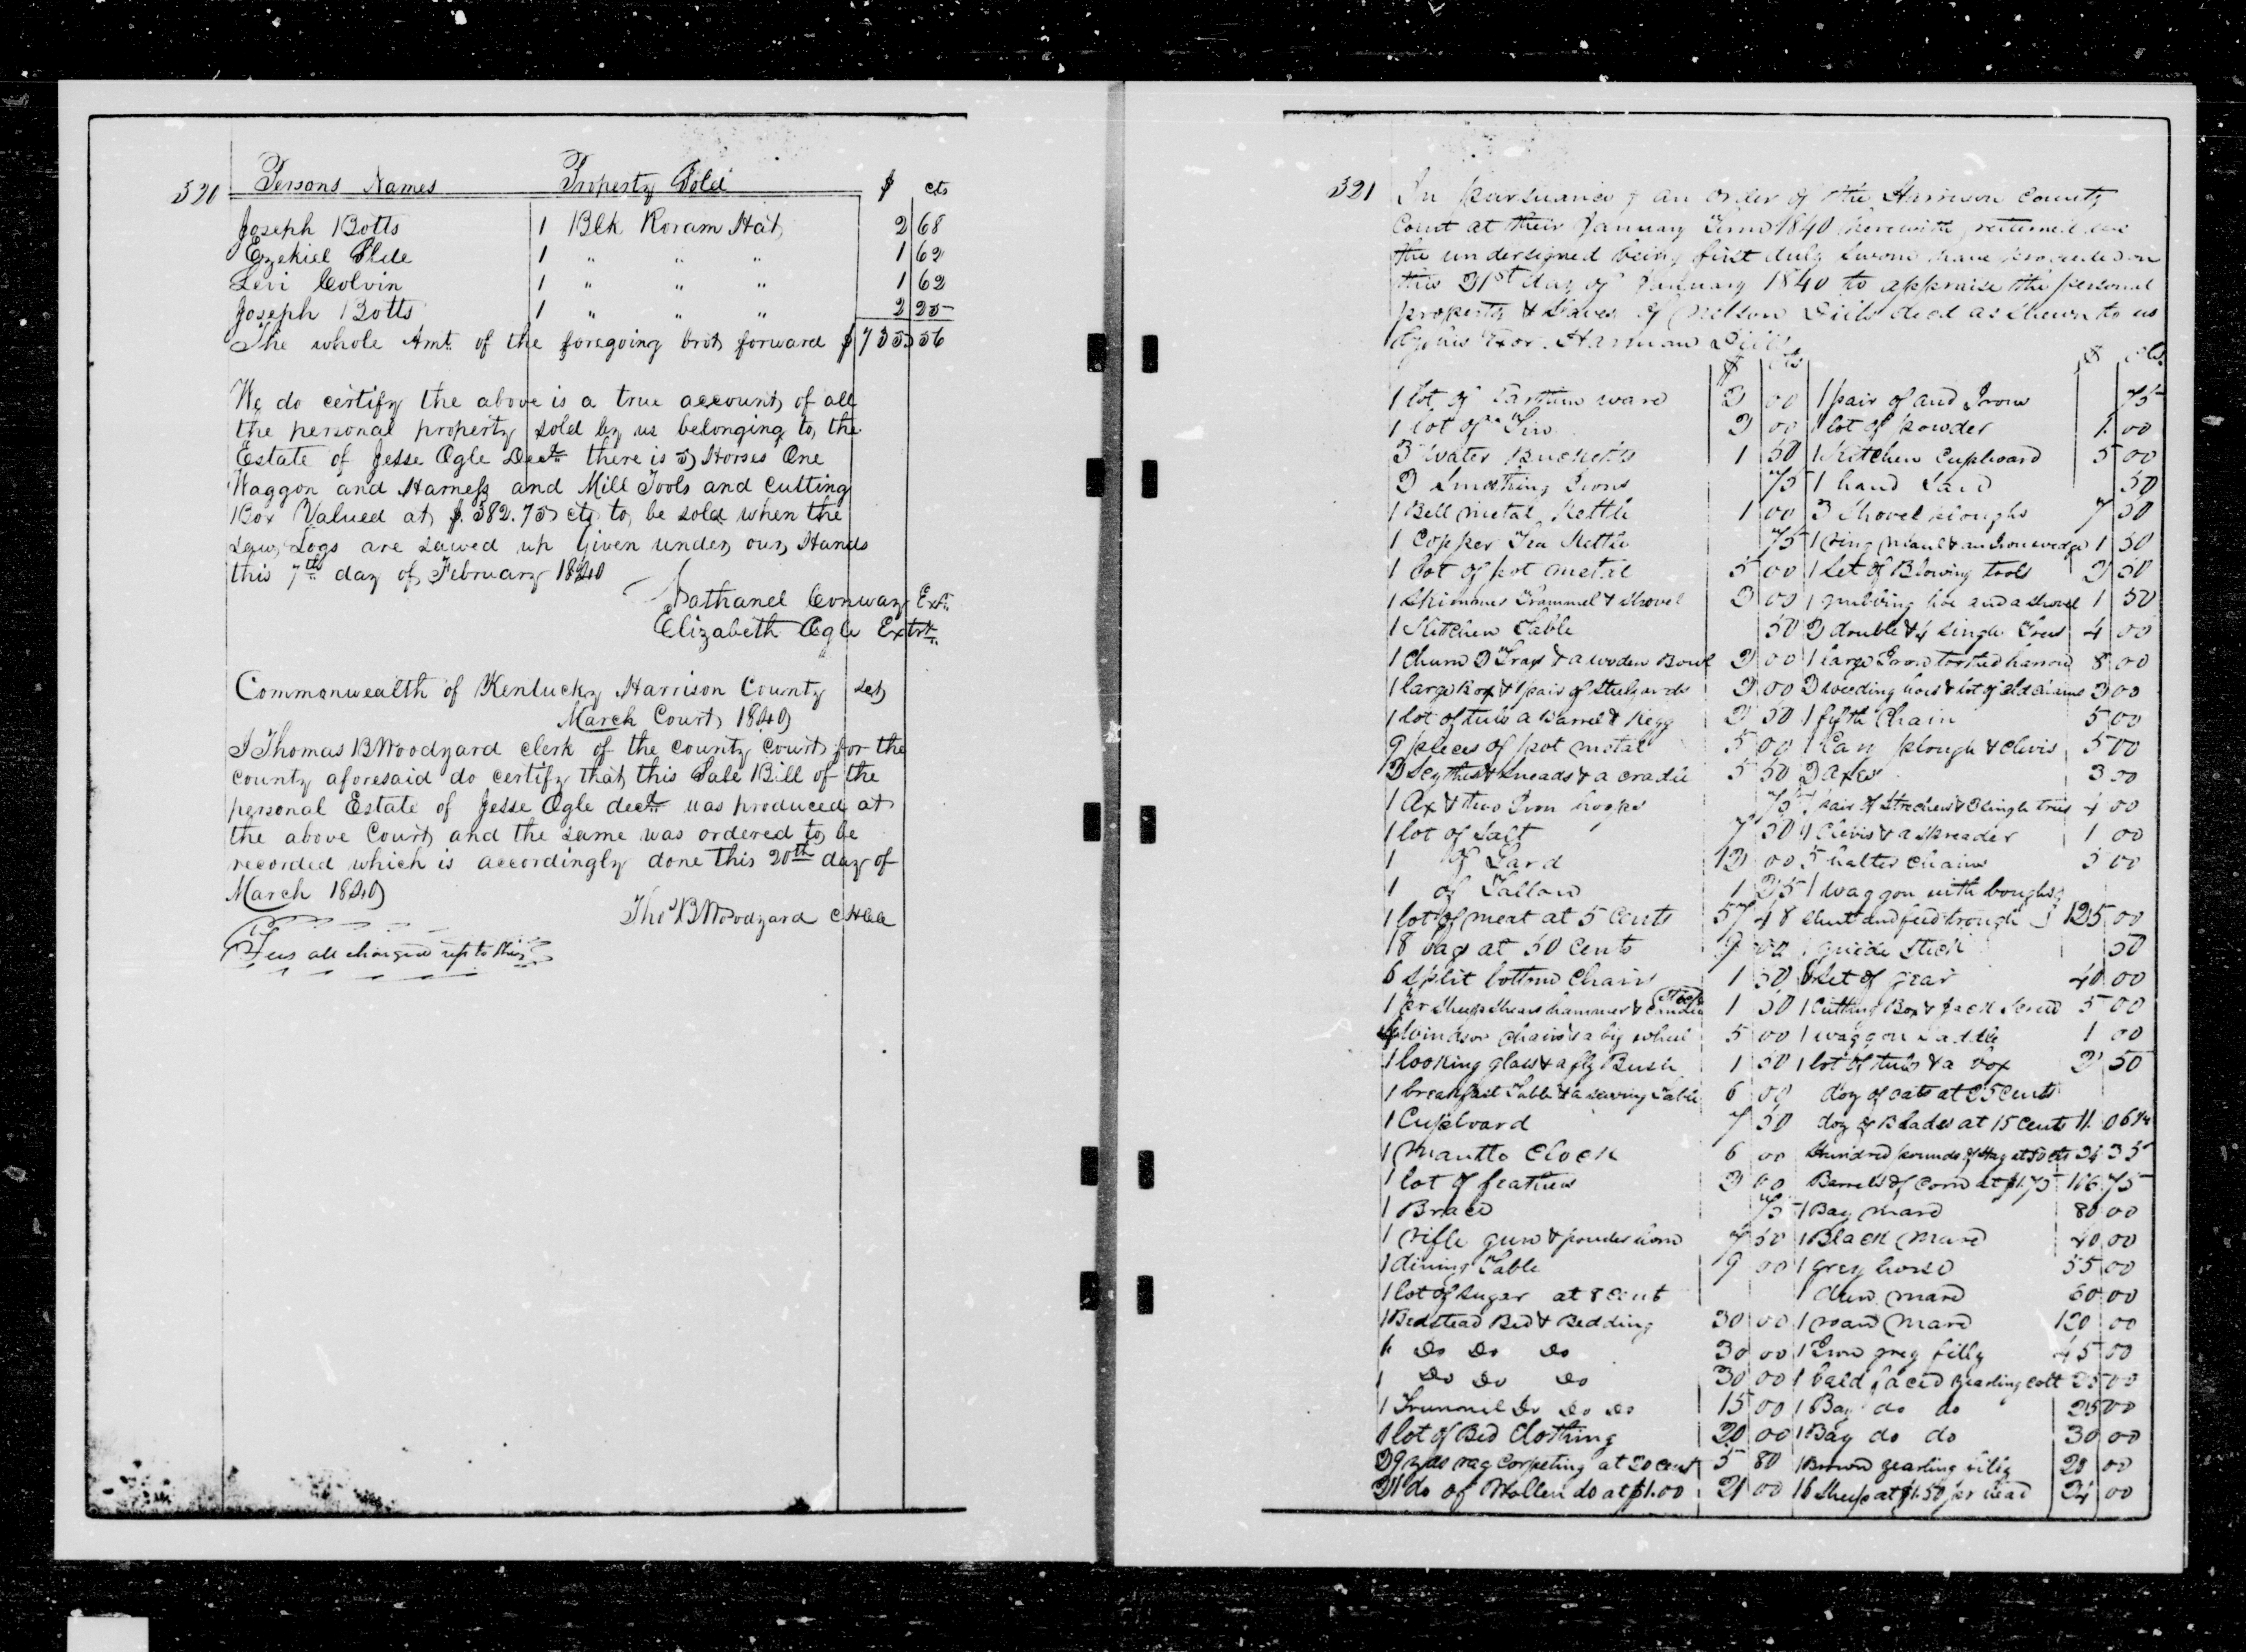 320 Persons Names Property Sold $ cts
Joseph Botts 1 Blk Roram Hat 2 68
Ezekiel Slade 1 " " " 1 62
Levi Colvin 1 " " " 1 62
Joseph Botts 1 " " " 2 25
The whole Amt. of the foregoing brot forward $ 56
We do certify the above is a true account of all
the personal property sold by us belonging to the
Estate of Jesse Ogle Decd there is Horses One
Waggon and Harness and Mill Tools and Cutting
Box Valued at $.382.75 cts to be sold when the
saw Logs are sawed up Given under our Hands
this 7th day of February 1840
Nathanel Conway Exr.
Elizabeth Ogle Extrx.
Commonwealth of Kentucky Harrison County Sct
March Court 1840
I Thomas B Woodyard clerk of the county court for the
county aforesaid do certify that this Sale Bill of the
personal Estate of Jesse Ogle decd was produced at
the above Court and the same was ordered to be
recorded which is accordingly done this 20th day of
March 1840
Thos B Woodyard CHCC
Fees all charged up to this
321 In pursuance of an order of the Harrison County
Court at their January Term 1840 herewith returned we
the undersigned being first duly sworn have proceeded on
this 31st day of January 1840 to appraise the personal
property & Slaves of Nelson Dills decd as shewn to us
by his Exor. Harmon Dills
$ cts $ cts
1 lot of Earthen ware 2 00 1 pair of and Irons 75
1 lot of Tin 2 00 1 lot of powder 1 00
3 water Bucketts 1 50 1 Kitchen Cupboard 5 00
2 Smothing Irons 75 1 hand Saw 50
1 Bell metal Kettle 1 00 3 Shovel ploughs 7 50
1 Copper Tea Kettle 75 1 ring maul & an Iron wedge 1 50
1 lot of pot metal 5 00 1 Set of Blowing tools 2 50
1 Skimmer Trammel & Shovel 2 00 1 grubbing hoe and a shovel 1 50
1 Kitchen Table 50 2 double & 4 single Trees 4 00
1 Churn 2 Trays & a wooden Bowl 2 00 1 large Iron toothed harrow 8 00
1 large Box & 1 pair of Steelyards 2 00 3 weeding hoes & lot of old chains 2 00
1 lot of tubs a Barrel & Kegg 2 50 1 fifth Chain 5 00
9 pieces of pot metal 5 00 1 Cary plough & clivis 5 00
2 Scythes & Sneads & a cradle 5 50 2 Axes 3 00
1 Ax & two Iron hoops 75 1 pair of Strechers & 2 single trees 4 00
1 lot of Salt 7 50 4 Clivis & a spreader 1 00
1 of Lard 12 00 5 halter chains 5 00
1 of Tallow 1 25 1 waggon with boughs
1 lot of meat at 5 Cents 57 48 sheet and feed trough 125 00
18 bags at 50 Cents 9 00 1 guide Stick 50
6 split bottom Chairs 1 50 6 Set of gear 40 00
1 pr Sheep Shears hammer & Candle Stick 1 50 1 Cutting Box & Jack Screw 5 00
6 Windsor chairs & a big wheel 5 00 1 waggon Saddle 1 00
1 looking glass & a fly Brush 1 50 1 lot of tubs & a box 2 50
1 breakfast Table & a sewing Table 6 00 doz of oats at 25 cents
1 Cupboard 7 50 doz of Blades at 15 Cents 11.06¼
1 Mantle Clock 6 00 Hundred pounds of Hay at 50 cts 24 35
1 lot of feathers 2 00 Barrels of Corn at $1.75 116.75
1 Brace 75 1 Bay mare 80 00
1 rifle gun & powder horn 7 50 1 Black Mare 40 00
1 dining Table 9 00 1 grey horse 55 00
1 lot of sugar at 8 cent 1 dun mare 60 00
1 Bedstead Bed & Bedding 30 00 1 roan Mare 120 00
1 Do Do Do 30 00 1 Iron grey filly 45 00
1 Do Do Do 30 00 1 bald faced yearling colt 25 00
1 Trunnil Do Do Do 15 00 1 Bay do do 25 00
1 lot of Bed Clothing 20 00 1 Bay do do 30 00
29 yds rag Corpeting at 20 cent 5 80 1 Brown yearling filly 20 00
21 do of Wollen do at $1.00 21 00 16 Sheep at $1.50 per head 24 00